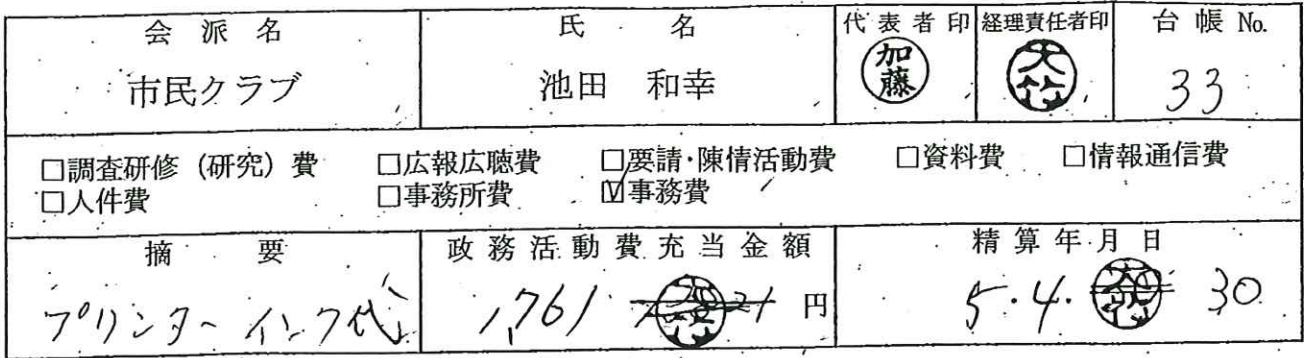 会派名 氏名 代表者印 経理責任者印 台帳 No.
市民クラブ 池田 和幸 加藤 大竹 33
□調査研修（研究）費 □広報広聴費 □要請・陳情活動費 □資料費 □情報通信費
□人件費 □事務所費 ☑事務費
摘要 政務活動費充当金額 精算年月日
プリンターインク代 1,761 円 5・4・ 30